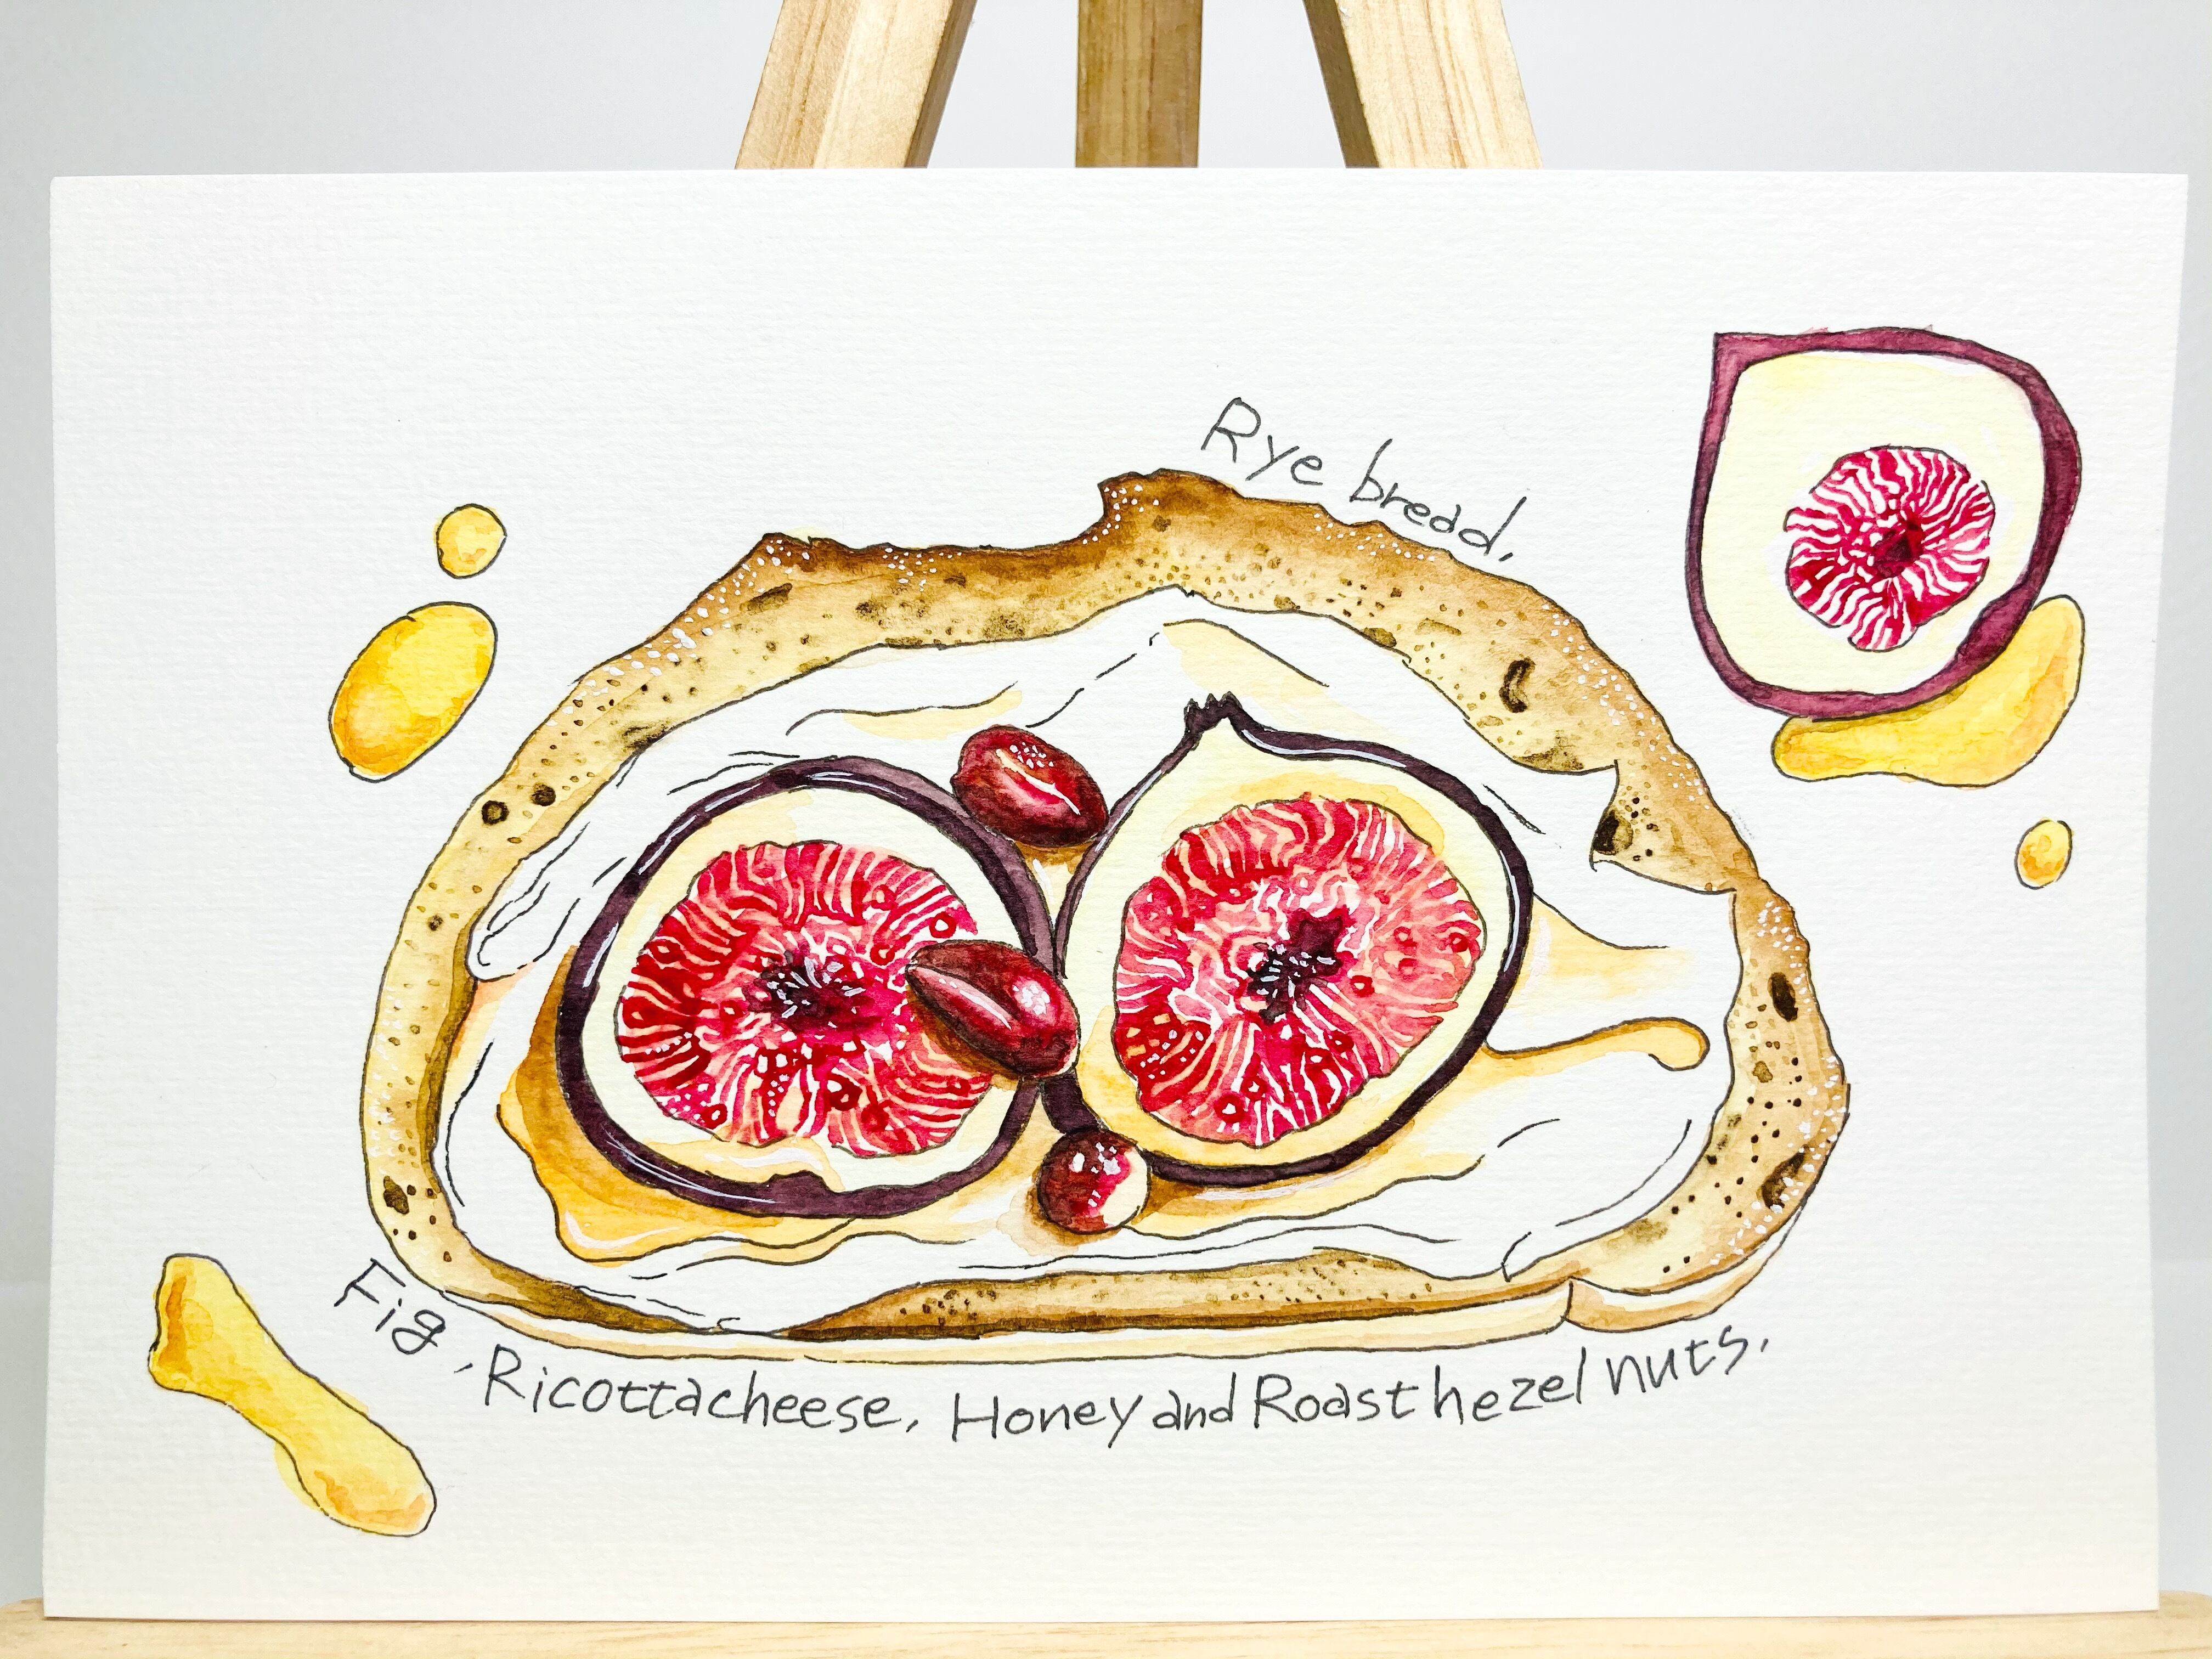 Rye bread,
Fig, Ricottacheese, Honey and Roast hezel nuts.